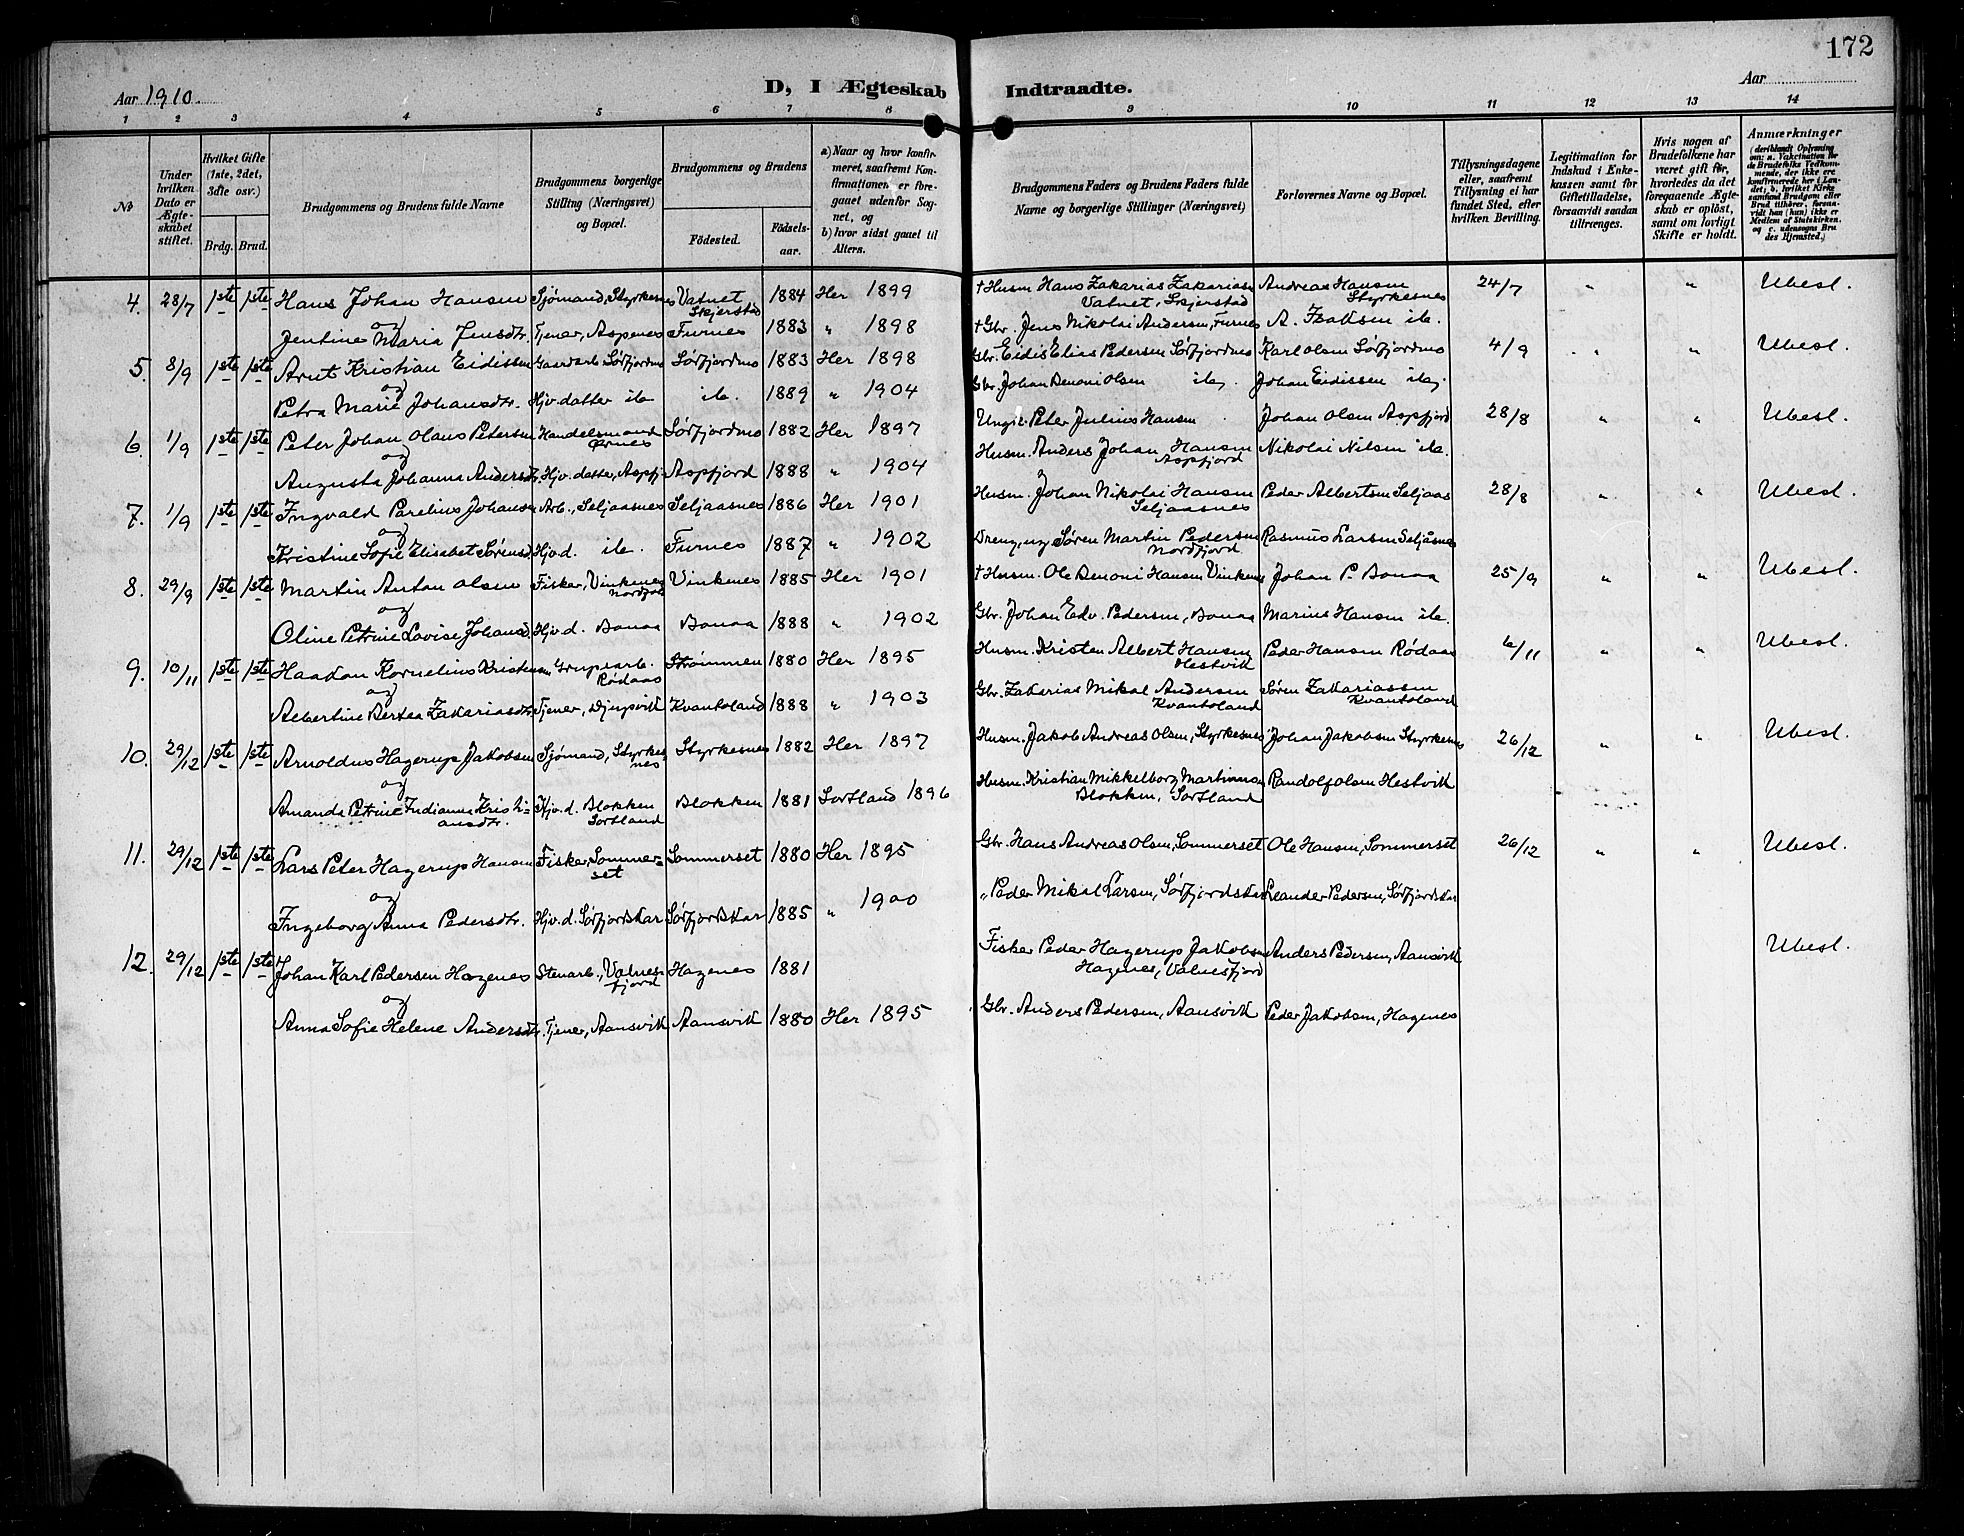 172
Aar 1910.
D, I Ægteskab Indtraadte.
Aar
1 2 3 4 5 6 7 8 9 10 11 12 13 14
№
Under hvilken Dato er Ægteskabet stiftet.
Hvilket Gifte (1ste, 2det, 3dte osv.)
Brdg. Brud.
Brudgommens og Brudens fulde Navne
Brudgommens borgerlige Stilling (Næringsvei) og Bopæl.
Brudgommens og Brudens
Födested. Födselsaar.
a) Naar og hvor konfirmeret, saafremt Konfirmationen er foregaaet udenfor Sognet, og
b) hvor sidst gaaet til Alters.
Brudgommens Faders og Brudens Faders fulde Navne og borgerlige Stillinger (Næringsvei)
Forlovernes Navne og Bopæl.
Tillysningsdagene eller, saafremt Tillysning ei har fundet Sted, efter hvilken Bevilling.
Legitimation for Indskud i Enkekassen samt for Giftetilladelse, forsaavidt saadan tiltrænges.
Hvis nogen af Brudefolkene har været gift för, hvorledes da det foregaaende Ægteskab er oplöst, samt om lovligt Skifte er holdt.
Anmærkninger (deriblandt Oplysning om: a. Vakcination for de Brudefolks Vedkommende, der ikke ere konfirmerede her i Landet; b. hvilket Kirkesamfund Brudgom eller Brud tilhörer, forsaavidt han (hun) ikke er Medlem af Statskirken, og c. udensogns Brudes Hjemsted.)
4. 28/7 1ste 1ste Hans Johan Hansen Sjømand, Styrkesnes Vatnet Skjerstad 1884 Her 1899 † Husm. Hans Zakarias Zakariassen Vatnet, Skjerstad Andreas Hansen Styrkesnes 24/7 " " Ubesl.
og
Jentine Maria Jensdtr. Tjener, Aspenes Furnes 1883 " 1898 † Gbr. Jens Nikolai Andersen, Furnes A. Isaksen ib.
5. 8/9 1ste 1ste Arnt Kristian Eidissen Gaardarb. Sørfjordmo Sørfjordmo 1883 Her 1898 Gbr. Eidis Elias Pedersen Sørfjordmo Karl Olsen Sørfjordmo 4/9 " " Ubesl.
og
Petra Marie Johansdtr. Hjv. datter ib. ib. 1889 " 1904 Gbr. Johan Benoni Olsen ib. Johan Eidissen ib.
6. 1/9 1ste 1ste Peter Johan Olaus Petersen Handelsmand Ørnes Sørfjordmo 1882 Her 1897 Ungk. Peter Julius Hansen Johan Olsen Aspfjord 28/8 " " Ubesl.
og
Augusta Johanna Andersdtr. Hjv. datter, Aspfj. Aspfjord 1888 " 1904 Husm. Anders Johan Hansen Aspfjord Nikolai Nilsen ib.
7. 1/9 1ste 1ste Ingvald Parelius Johansen Arb., Seljaasnes Seljaasnes 1886 Her 1901 Husm. Johan Nikolai Hansen Seljaasnes Peder Albertsen Seljaas 28/8 " " Ubesl.
og
Kristine Sofie Elisabet Sørensd. Hjv. d. ib. Furnes 1887 " 1902 Dreng, ug. Søren Martin Pedersen Nordfjord Rasmus Larsen Seljåsnes
8. 29/9 1ste 1ste Martin Anton Olsen Fisker, Vinkenes Nordfjord Vinkenes 1885 Her 1901 † Husm. Ole Benoni Hansen Vinkenes Johan P. Bonaa 25/9 " " Ubesl.
og
Oline Petrine Lovise Johansd. Hjv. d. Bonaa Bonaa 1888 " 1902 Gbr. Johan Edv. Pedersen, Bonaa Marius Hansen ib.
9. 10/11 1ste 1ste Haakon Kornelius Kristensen Grubearb. Rødaas Strømmen 1880 Her 1895 Husm. Kristen Albert Hansen Hestvik Peder Hansen Rødaas 6/11 " " Ubesl.
og
Albertine Bertea Zakariasdtr. Tjener, Djupvik Kvantoland 1888 " 1903 Gbr. Zakarias Mikal Andersen Kvantoland Søren Zakariassen Kvantoland
10. 29/12 1ste 1ste Arnoldus Hagerup Jakobsen Sjømand, Styrkesnes Styrkesnes 1882 Her 1897 Husm. Jakob Andreas Olsen, Styrkesnes Johan Jakobsen Styrkesnes 26/12 " " Ubesl.
og
Amanda Petrine Indianna Kristiansdtr. Hjv. d. Blokken Sortland Blokken 1881 Sortland 1896 Husm. Kristian Mikkelborg Martinussen Blokken, Sortland Randolf Olsen Hestvik
11. 29/12 1ste 1ste Lars Peter Hagerup Hansen Fisker, Sommerset Sommerset 1880 Her 1895 Gbr. Hans Andreas Olsen, Sommerset Ole Hansen, Sommerset 26/12 " " Ubesl.
og
Ingeborg Anna Pedersdtr. Hjv. d. Sørfjordskar Sørfjordskar 1885 " 1900 " Peder Mikal Larsen, Sørfjordskar Leander Pedersen, Sørfjordskar
12. 29/12 1ste 1ste Johan Karl Pedersen Hagenes Stenarb., Valnesfjord Hagenes 1881 Fisker Peder Hagerup Jakobsen Hagenes, Valnesfjord Anders Pedersen, Aansvik Ubesl.
og
Anna Sofie Helene Andersdtr. Tjener, Aansvik Aansvik 1880 Her 1895 Gbr. Anders Pedersen, Aansvik Peder Jakobsen, Hagenes